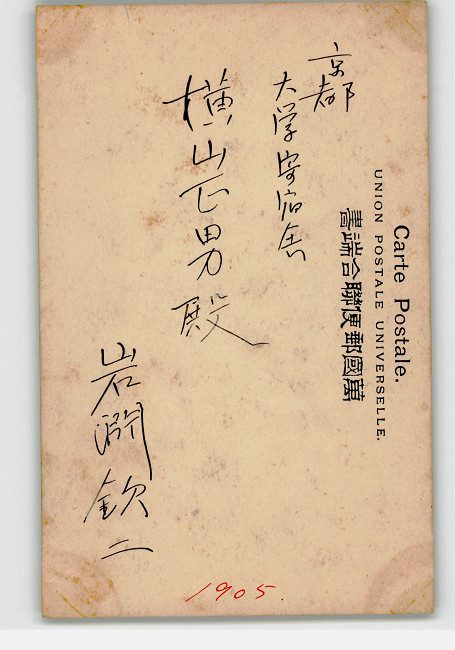 Carte Postale.
UNION POSTALE UNIVERSELLE.
萬國郵便聯合端書
京都
大学寄宿舎
横山正男殿
岩淵欽二
1905.